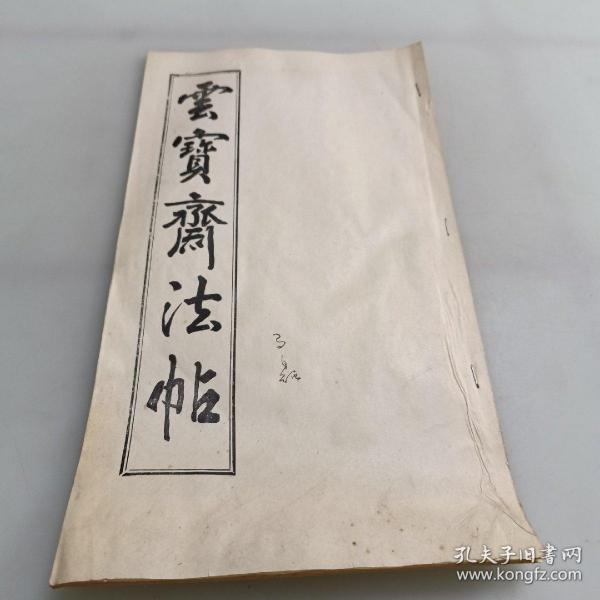 雲寶齋法帖
孔夫子旧書网
www.kongfz.com